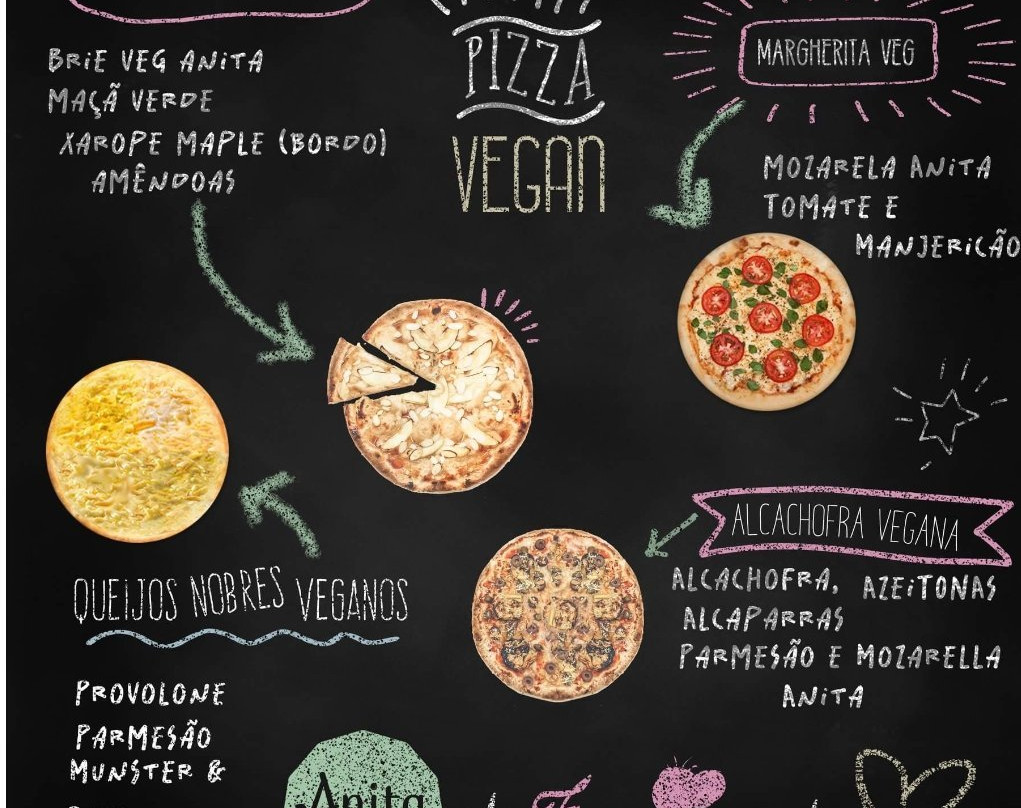 PIZZA
VEGAN
BRIE VEG ANITA
MAÇÃ VERDE
XAROPE MAPLE (BORDO)
AMÊNDOAS
MARGHERITA VEG
MOZARELA ANITA
TOMATE E
MANJERICÃO
QUEIJOS NOBRES VEGANOS
PROVOLONE
PARMESÃO
MUNSTER &
ALCACHOFRA VEGANA
ALCACHOFRA, AZEITONAS
ALCAPARRAS
PARMESÃO E MOZARELLA
ANITA
Anita